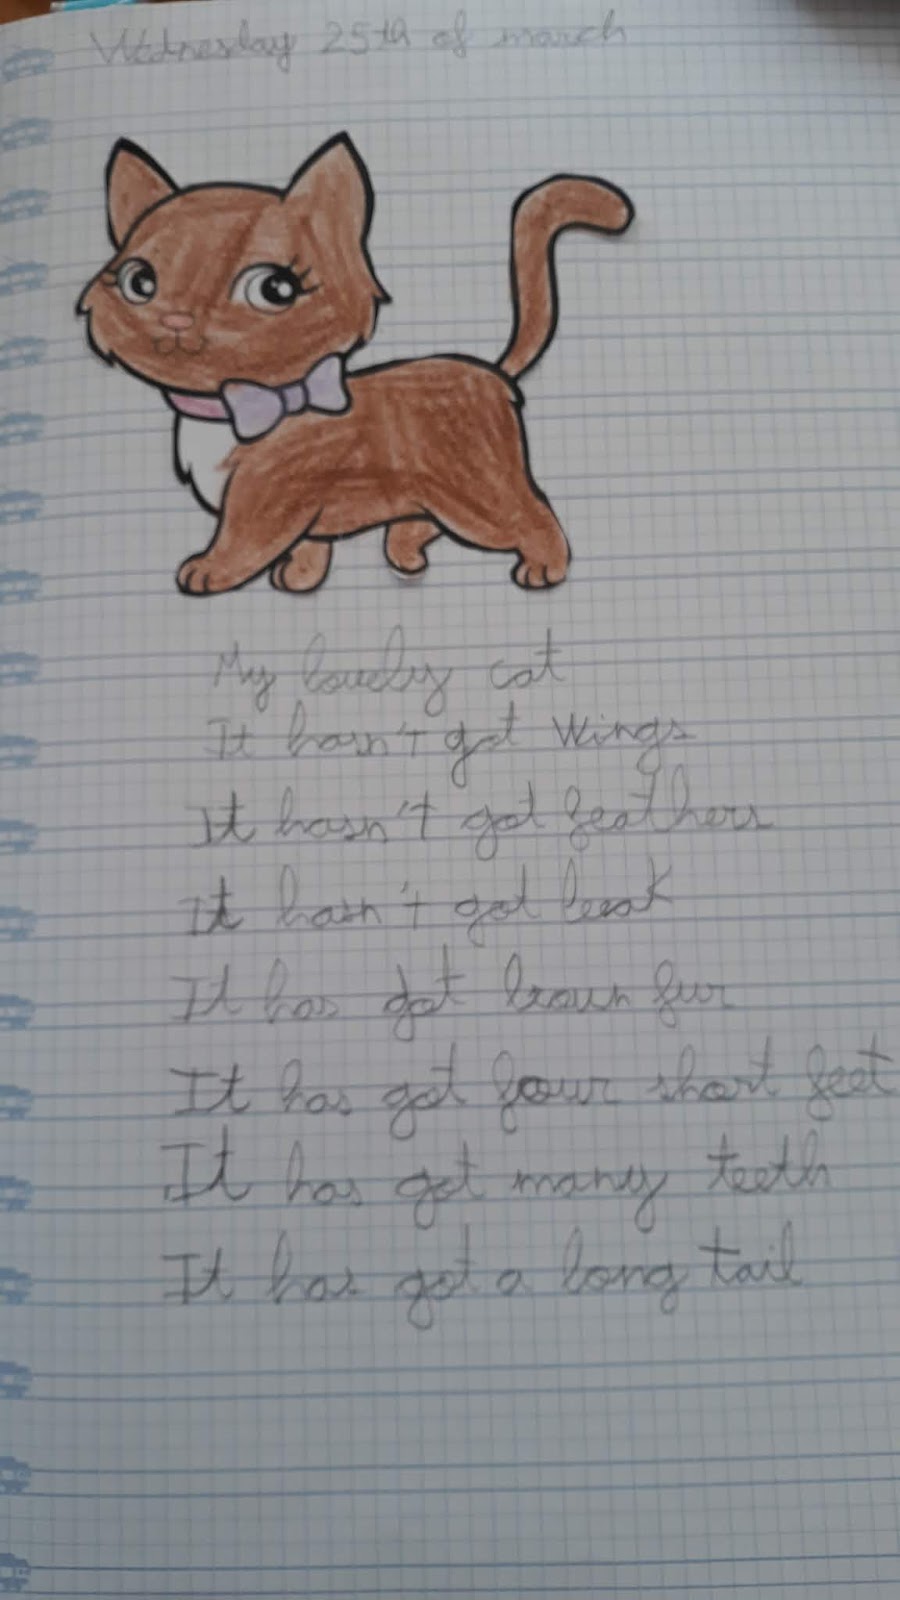 Wednesday 25th of march
My lovely cat
It hasn't got wings
It hasn't got feathers
It hasn't got beak
It has got brown fur
It has got four short feet
It has got many teeth
It has got a long tail